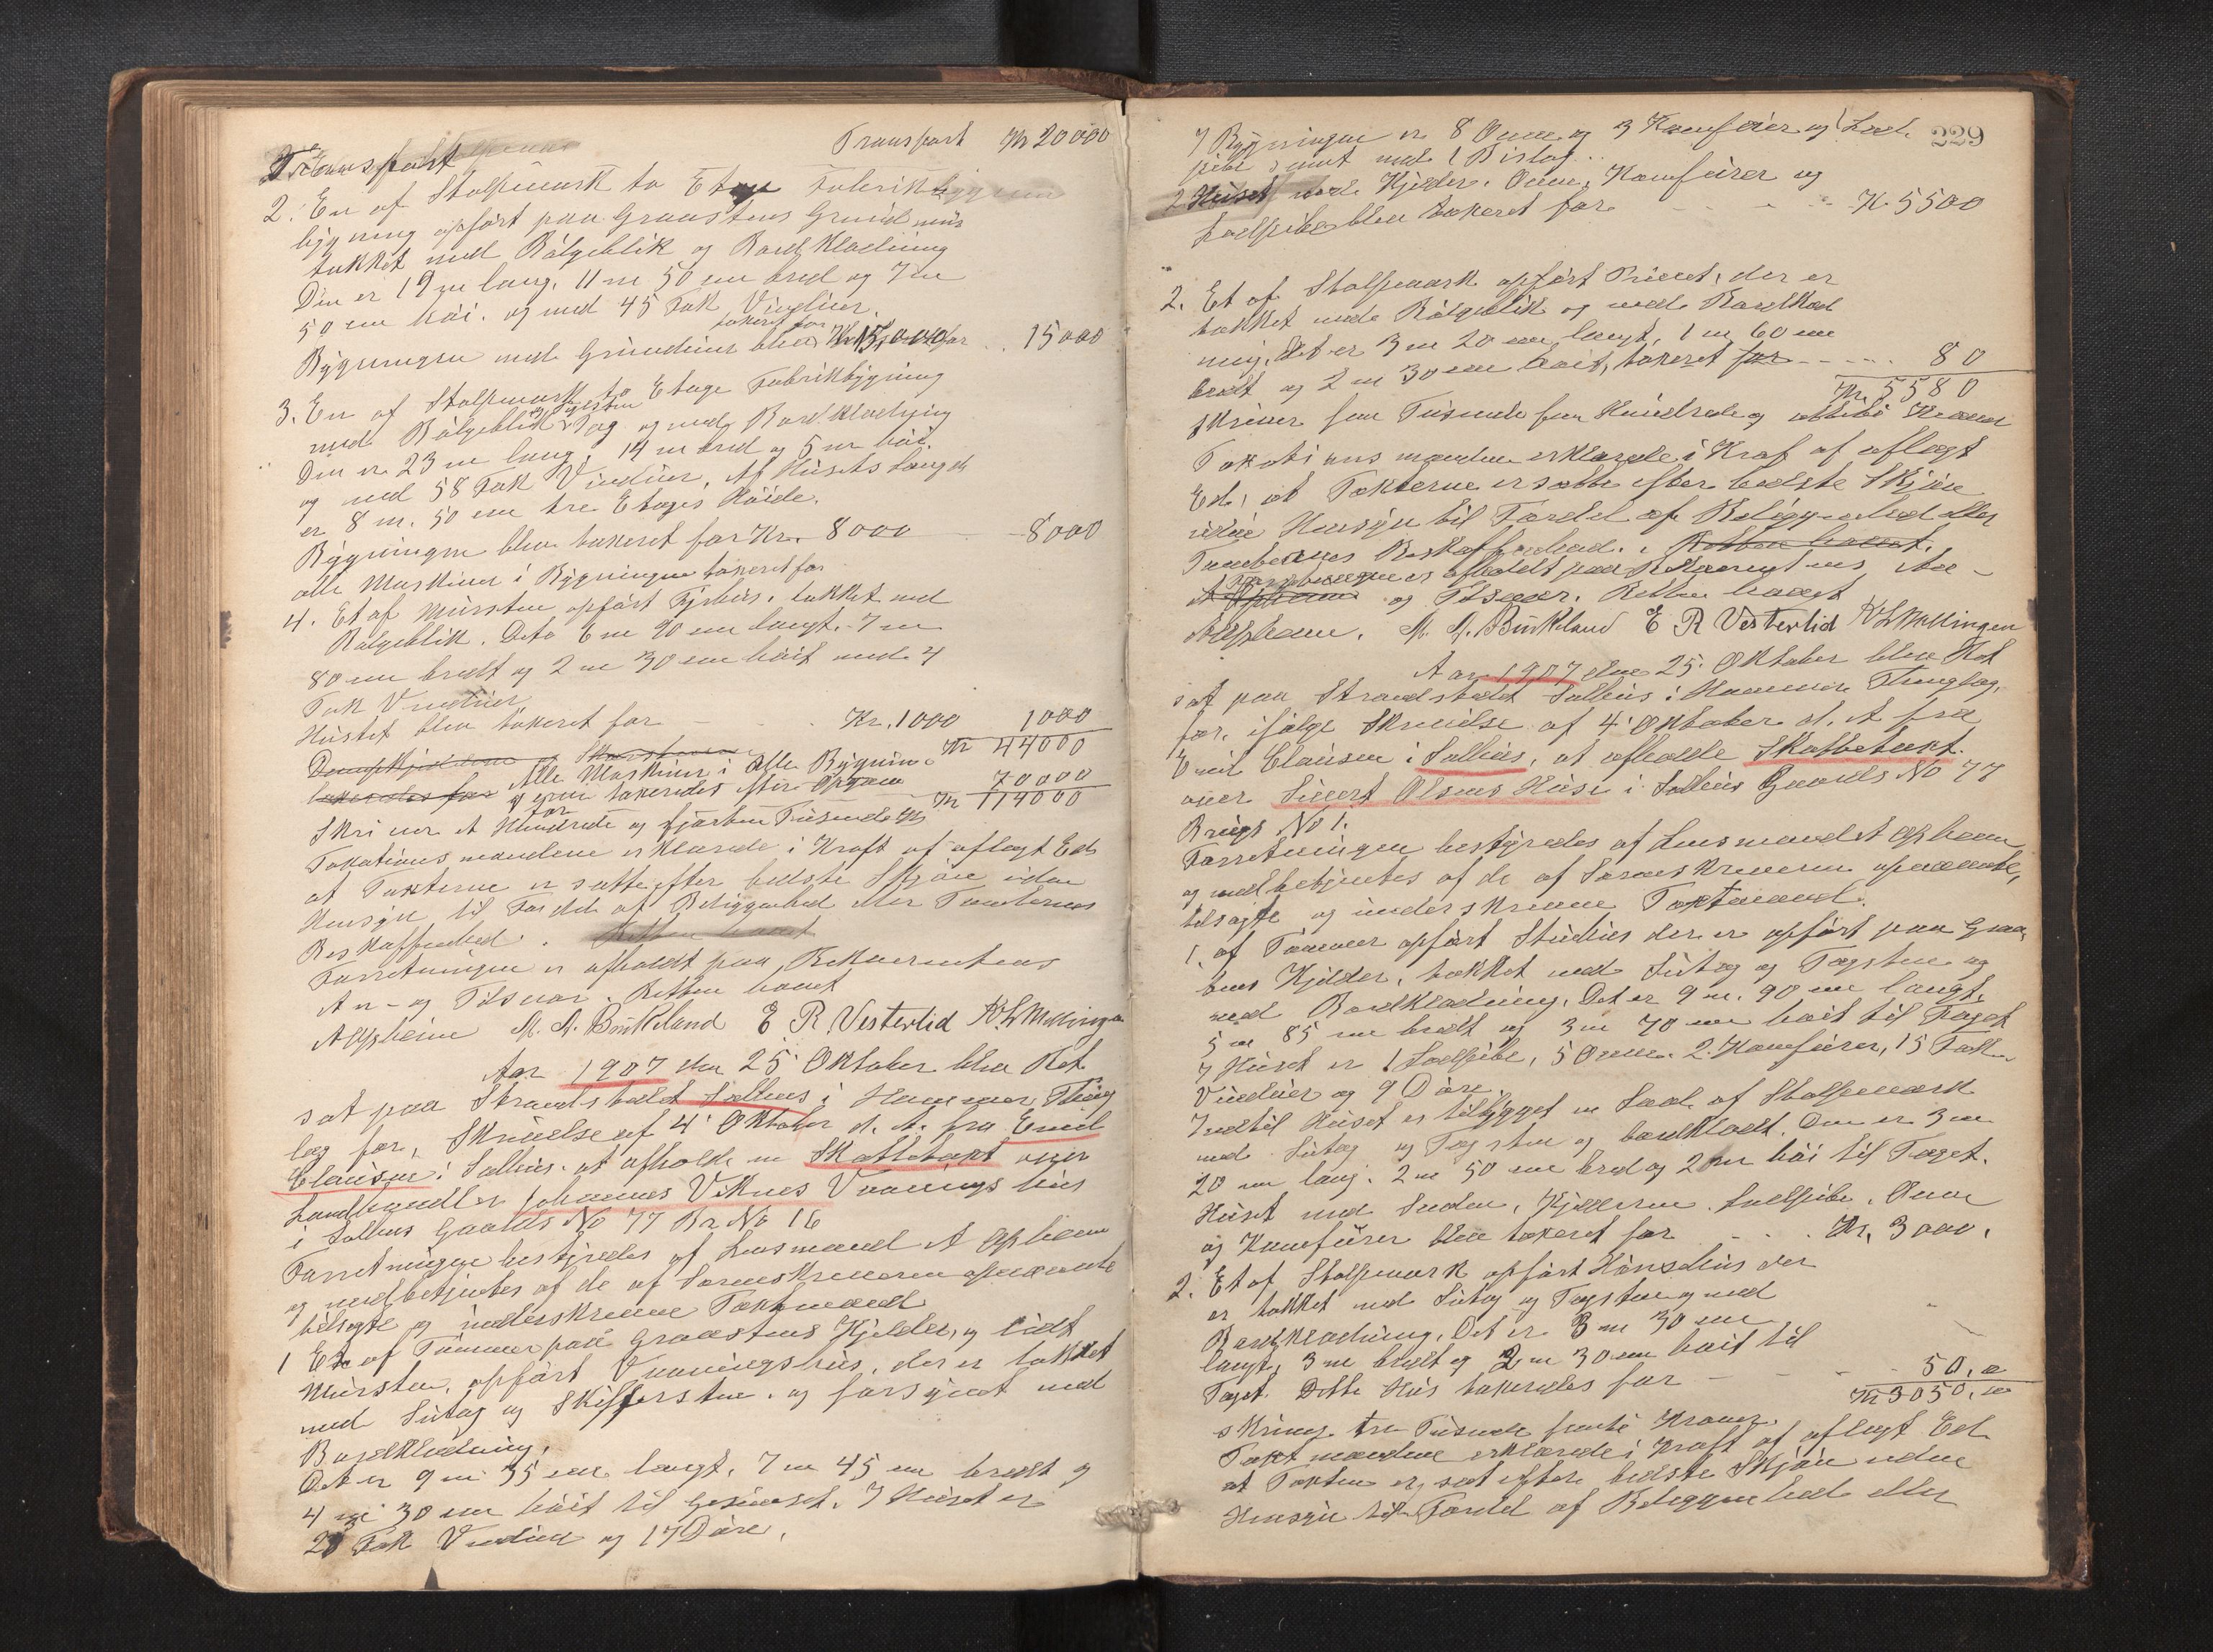 Transport Kr 20000
Transport
2. En af Stolpeværk to Etage Fabrikbygning
bygning opført paa Graastens Grundmur
tækket med Bølgeblik og Bordklædning
Den er 19 m lang, 11 m 50 cm bred og 7 m
50 cm høi. og med 45 Fak Vinduer.
takseret for
Bygningen med Grundmur blev Kr 15,000 for . . 15000
3. En af Stolpeværk to Etage Fabrikbygning
med Bølgeblik & Tagsten Tag og med Bordklædning
Den er 23 m lang, 14 m bred og 5 m høi.
og med 58 Fak Vinduer. Af Husets Længde
er 8 m. 50 cm tre Etages Høide.
Bygningen blev takseret for Kr. 8000 - 8000
alle Maskiner i Bygningen takseret for
4. Et af Mursten opført Fyrhus. tækket med
Bølgeblik. Dets 6 m 90 cm langt. 7 m
80 cm bredt og 2 m 30 cm høit med 4
Fak Vinduer
Hustet blev takseret for - . Kr. 1000 1000
Kr 44000
Dampkjedelen Skorstenen
Alle Maskiner i alle Bygnin-
takseredes for gerne takseredes efter Opgave 70000
Kr 114000
Skriver et Hundrede og fjorten Tusende Kr
Taksationsmændene erklærede i Kraft af aflagt Ed
at Taksterne er satte efter bedste Skjøn uden
Hensyn til Fordel af Beliggenhed eller Tomternes
Beskaffenhed. Retten hævet
Forretningen er afholdt paa Rekvirentens
An- og Tilsvar. Retten hævet
A Opheim M. A. Birkeland E R. Vesterlid K L Mellingen
Aar 1907 den 25 Oktober blev Ret
sat paa Strandstedet Salhus i Hammer Thing
lag for, Skrivelse af 4' Oktober d. A. fra Emil
Clausen i Salhus. at afholde en Skattetakst over
Landhandler Johannes Viknes Vaanings hus
i Salhus Gaards No 77 Br. No 16
Forretningen bestyredes af Lensmand A Opheim
og medbetjentes af de af Sorenskriveren opnævnte
tilsagte og underskrevne Takstmænd
1 Et af Tømmer paa Graastens Kjelder, og lidt
Mursten, opført Vaaningshus, der er tækket
med Sutag og Skifersten. og forsynet med
Bordklædning.
Det er 9 m 35 cm langt, 7 m 45 cm bredt og
4 m 30 cm høit til Gesimset. I Huset er
23 Fak Vinduer og 17 Døre.
229
I Bygningen er 8 Ovne og 3 Komfuier og 1 Lod-
pibe samt med 1 Bislag..
2 Huset med Kjelder. Ovne, Komfuier og
Lodpibe blev takseret for - - - K. 5500
2. Et af Stolpeværk opført Privet, der er
tækket med Bølgeblik og med Bordklæd
ning. Det er 3 m 20 cm langt, 1 m 60 cm
bredt og 2 m 30 cm høit, takseret for - - - 80
Kr. 5580
skriver fem Tusinde fem Hundrede og otteti Kroner
Taksationsmændene erklærede i Kraft af aflagt
Ed, at Taksterne er satte efter bedste Skjøn
uden Hensyn til Fordel af Beliggenhed eller
Tomternes Beskaffenhed. Retten hævet.
Forretningen er afholdt paa Rekvirentens An-
A Opheim og Tilsvar. Retten hævet
A Opheim. M. A. Birkeland E R Vesterlid K L Mellingen
Aar 1907 den 25' Oktober blev Ret
sat paa Strandstedet Salhus i Hammer Thinglag,
for, ifølge Skrivelse af 4' Oktober d. A fra
Emil Clausen i Salhus, at afholde Skattetakst
over Sivert Olsens Huse i Salhus Gaards No 77
Brugs No 1.
Forretningen bestyredes af Lensmand A Opheim
og medbetjentes af de af Sorenskriveren opnævnte,
tilsagte og underskrevne Takstmænd.
1. af Tømmer opført Stuehus der er opført paa Graa-
tens Kjelder, tækket med Sutag og Tagsten og
med Bordklædning. Det er 9 m. 90 cm langt.
5 m 85 cm bredt og 3 m 70 cm høit til Taget
I Huset er 1 Lodpibe, 5 Ovne. 2. Komfuier, 15 Fak
Vinduer og 9 Døre.
Indtil Huset er tilbygget en Lade af Stolpeværk
med Sutag og Tagsten og bordklædt. Den er 3 m
20 cm lang. 2 m 50 cm bred og 2 m høi til Taget.
Huset med Laden, Kjelderen. Lodpibe. Ovne
og Komfuier blev takseret for - . . Kr. 3000.
2. Et af Stolpeværk opført Hønsehus der
er tækket med Sutag og Tagsten og med
Bordklædning. Det er 3 m 30 cm
langt, 3 m bredt og 2 m 30 cm høit til
Taget. Dette Hus takseredes for - - - 50,00
Kr 3050,00
skriver tre Tusinde femti Kroner.
Takstmændene erklærede i Kraft af aflagt Ed
at Taksten er sat efter bedste Skjøn uden
Hensyn til Fordel af Beliggenhed eller